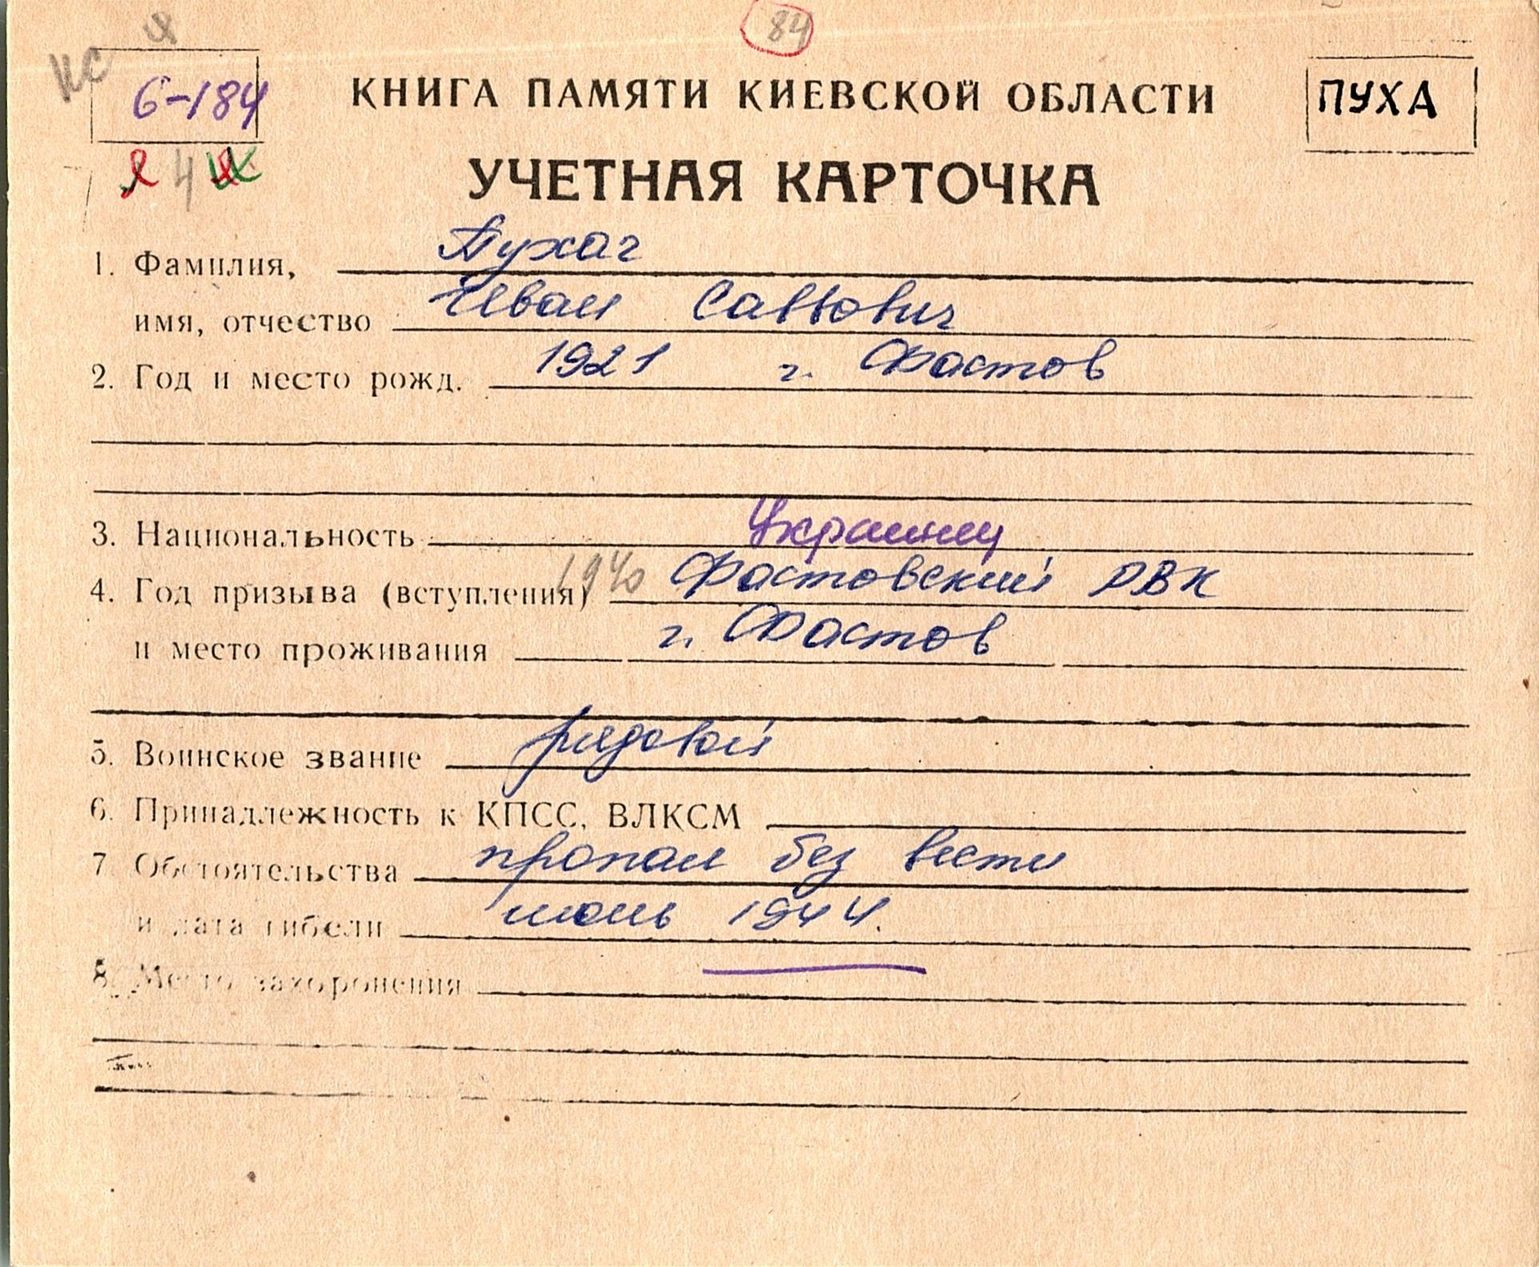 84
6-184
КНИГА ПАМЯТИ КИЕВСКОЙ ОБЛАСТИ
ПУХА
УЧЕТНАЯ КАРТОЧКА
1. Фамилия, Пухач
имя, отчество Иван Саввович
2. Год и место рожд. 1921 г. Фастов
3. Национальность Украинец
4. Год призыва (вступления) 1940 Фастовский РВК
и место проживания г. Фастов
5. Воинское звание рядовой
6. Принадлежность к КПСС, ВЛКСМ
7. Обстоятельства пропал без вести
и дата гибели июнь 1944.
8. Место захоронения